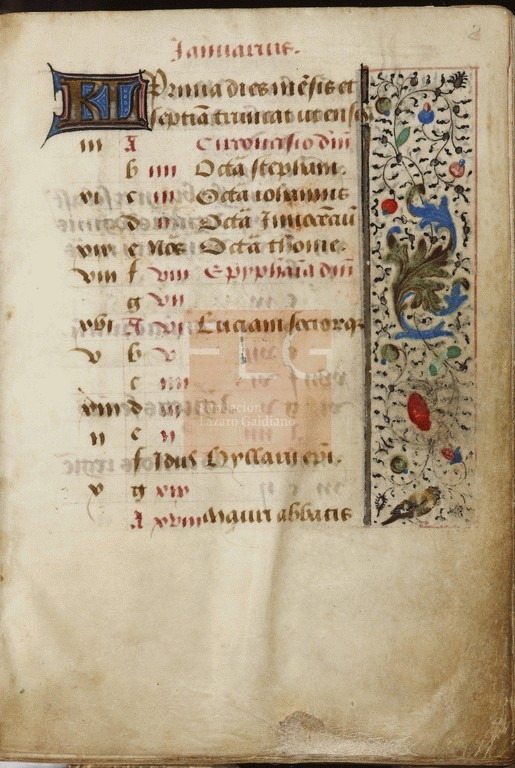 2
Januarius.
KL Prima dies mēsis et
septīa truncat ut ensis
iii A Circūcisio dn̄i
b iiii Octā stephani.
xi c iii Octā iohannis
d ii Octā Innocenciū
xix e Nos Octā thome.
viii f viii Epyphaīa dn̄i
g vii
xvi A vi Luciani sociorqꝫ
v b v
c iiii
xiii d iii
ii e ii
f Idus Hyllarii epi.
x g xix
A xviii Mauri abbatis
FLG
Fundación
Lázaro Galdiano